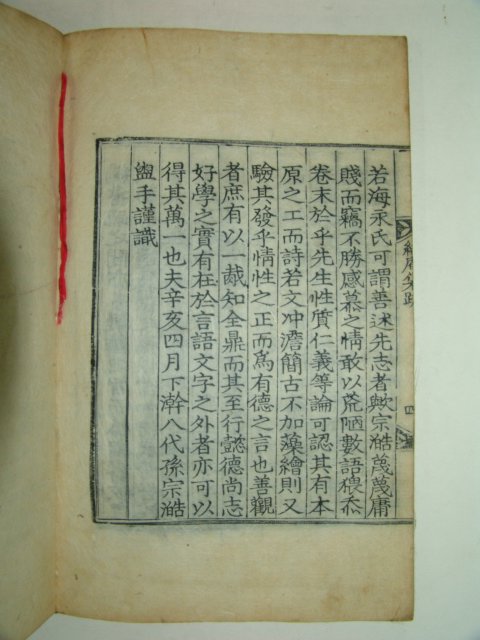 若海永氏可謂善述先志者歟宗浩蔑蔑庸
賤而竊不勝感慕之情敢以荒陋數語猥忝
卷末於乎先生性質仁義等論可認其有本
原之工而詩若文冲澹簡古不加藻繪則又
驗其發乎情性之正而爲有德之言也善觀
者庶有以一胾知全鼎而其至行懿德尙志
好學之實有在於言語文字之外者亦可以
得其萬一也夫辛亥四月下澣八代孫宗浩
盥手謹識
跋
四